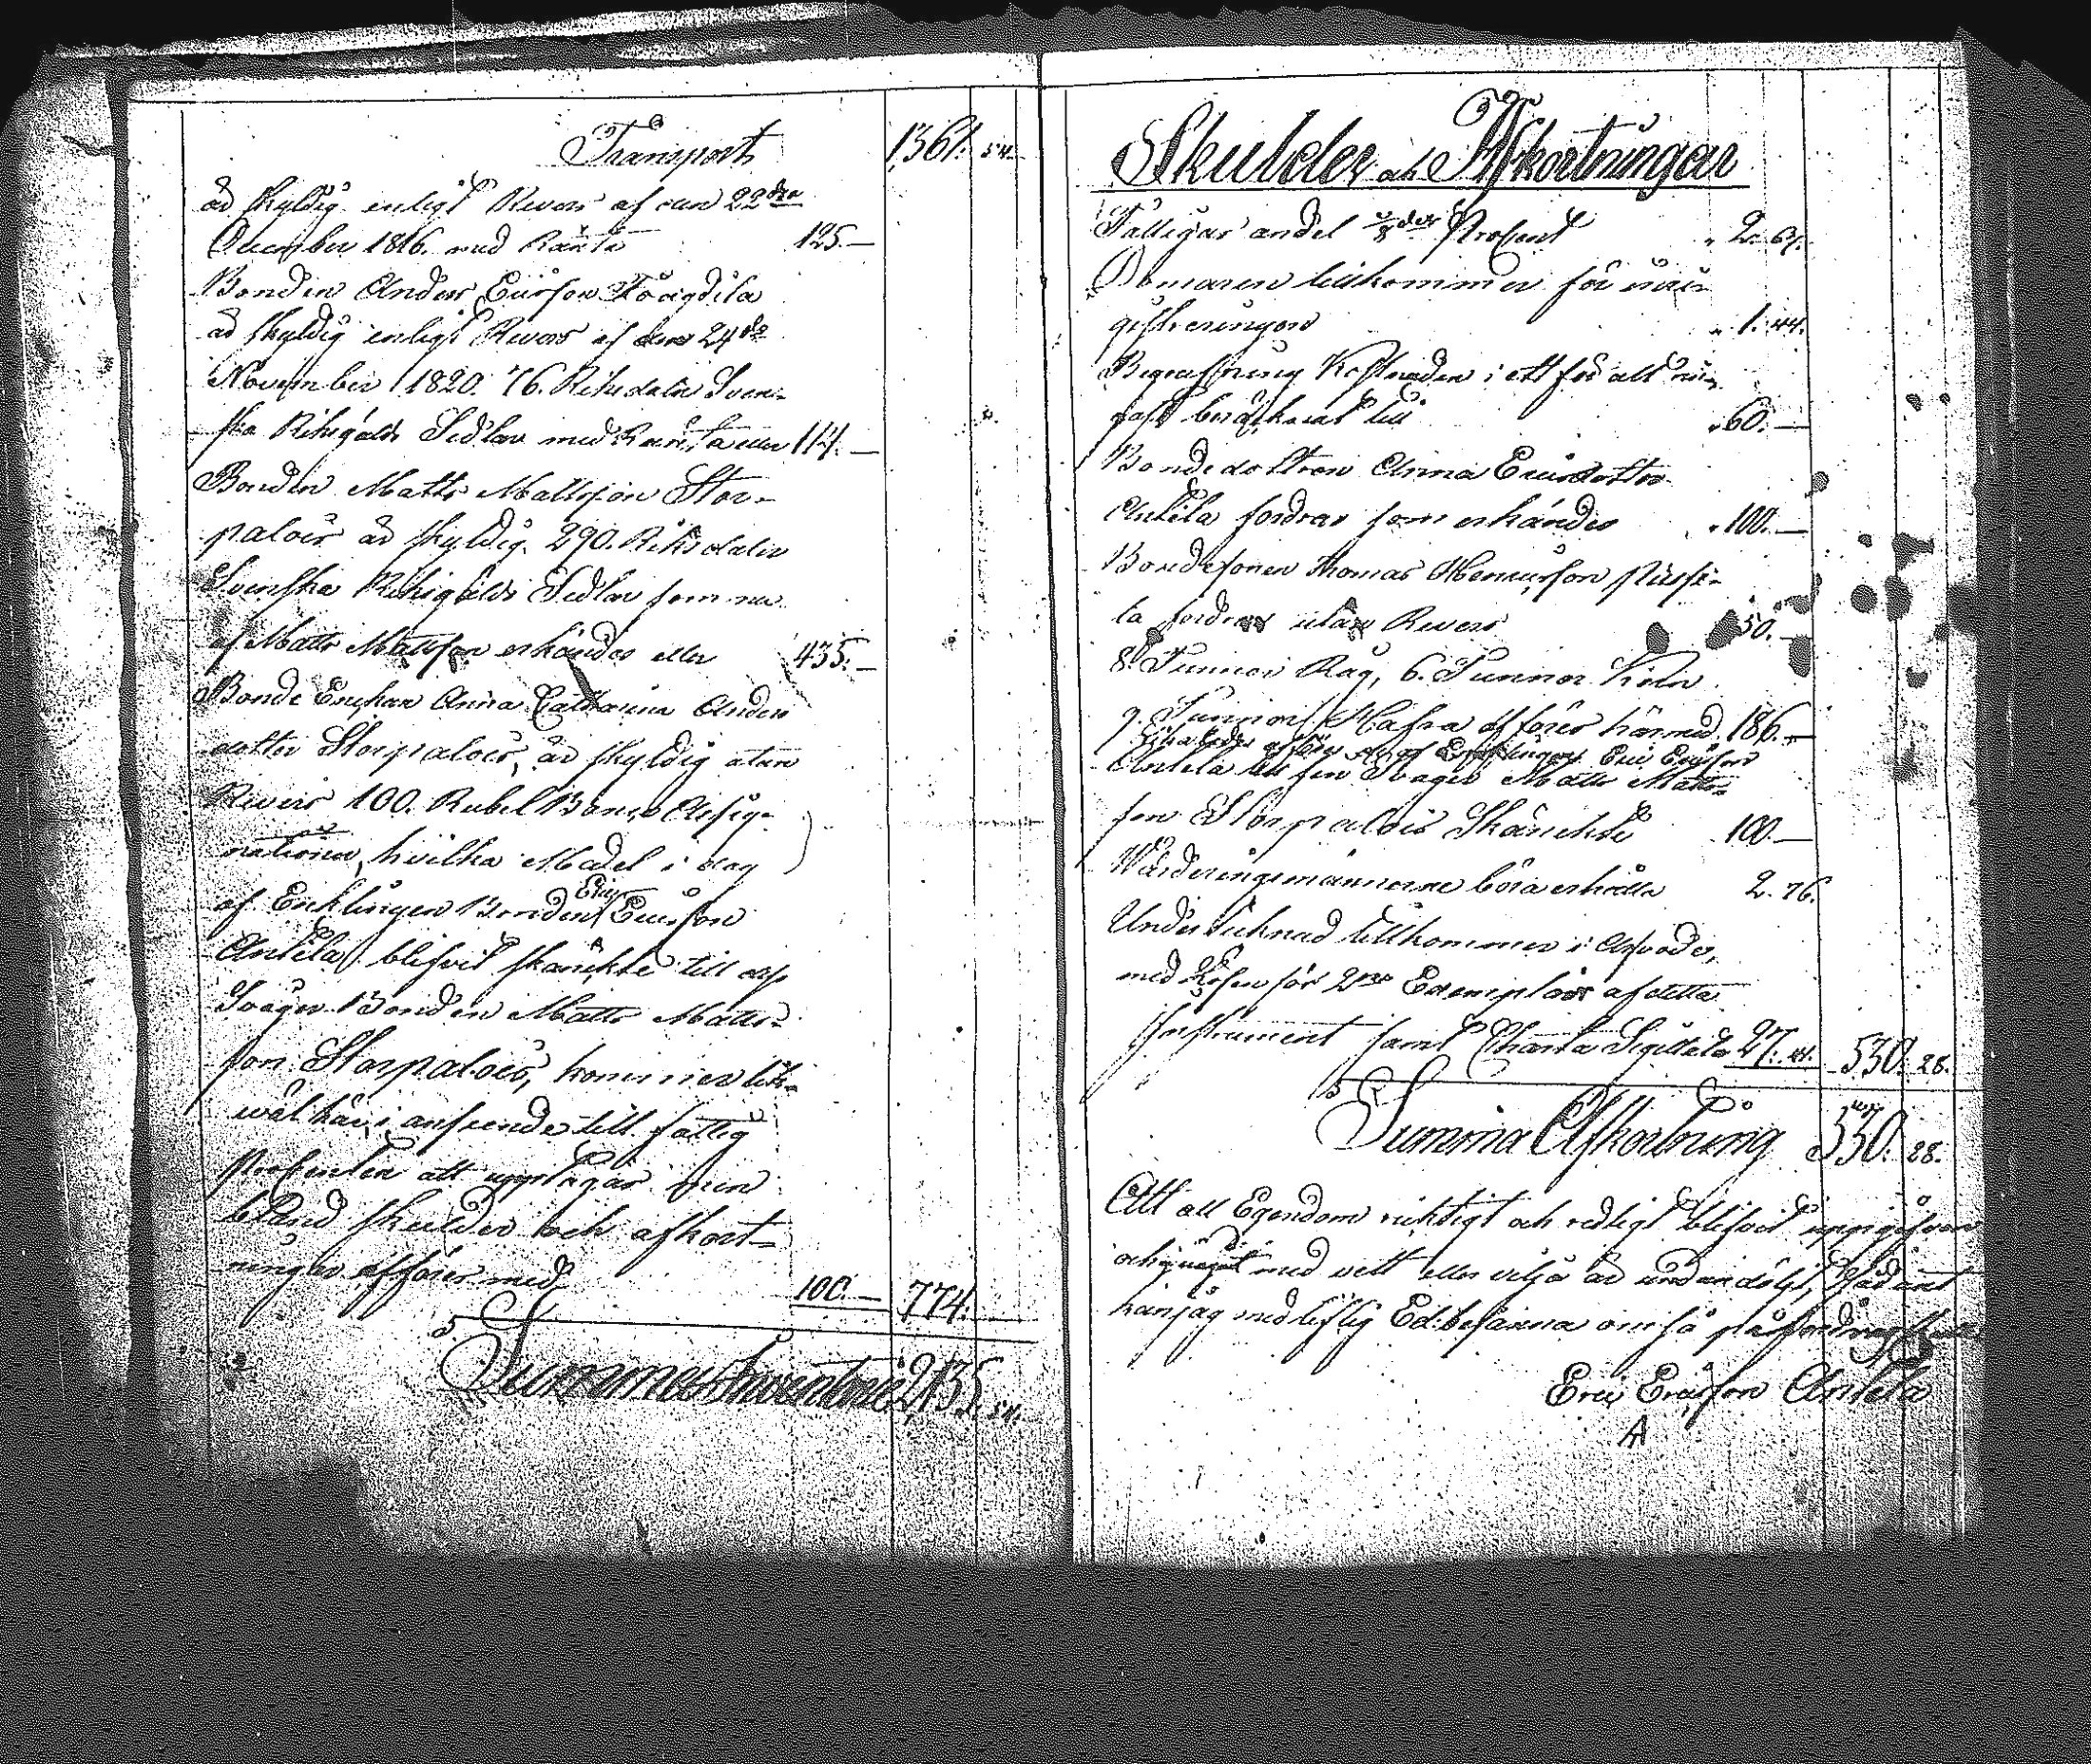 Transport 1361. 54.
är skyldig enligt Revers af den 22dra
December 1816. med Ränta 125.—
Bonden Anders Ericsson
är skyldig enligt Revers af den 24de
November 1820. 76. Riksdaler Sven-
ska Riksgälds Sedlar med Ränta eller 114.—
Bonden Matts Mattsson Stor-
palois är skyldig 290. Riksdaler
Svenska Riksgälds Sedlar som nu
af Matts Mattsson erhändes eller 435.—
Bonde Enckan Anna Catharina Anders
dotter Storpalois, är skyldig utan
Revers 100. Rubel Banco Assig-
nationer, hvilka Medel i dag
af Encklingen Bonden Eric Ericsson
Antila blifvit skänckte till dess
Svåger Bonden Matts Matts-
son Storpalois, kommer lik-
wäl här, i anseende till fattig
Procenten att upptagas men
bland skulder och afkort-
ningar afföres med 100.— 774.
Summa Inventarie 2,135. 54.
Skulder och Afkortningar
Fattigas andel 1/8 dels Procent 2. 67.
Domaren tillkommer för inre-
gistreringen 1. 44.
Begrafning Kostnaden i ett för alt
beräknat till 60.—
Bondedottren Anna Ericsdotter
Antila fordrar som erhändes 100.—
Bondesonen Thomas Henricsson
la fordrar utan Revers 50.—
8. Tunnor Råg, 6. Tunnor Korn
9. Tunnor Hafra afföres härmed 186.—
af Encklingen Eric Ericsson
Antila till sin Svåger Matts Matts-
son Storpalois Skänckte 100.—
Wärderingsmännerne böra erhålla 2. 76.
Undertecknad tillkommer i Arfvode,
med Lösen för 2ne Exemplar af detta
Instrument samt Charta Sigillata 27. 41. 530. 28.
Summa Afkortning 530. 28.
Att all Egendom richtigt och redligt blifvit uppgifven
och med vett eller vilja är undandöljt, sådant
kan jag med liflig Ed besanna om så påfordras
Eric Ericsson Antila